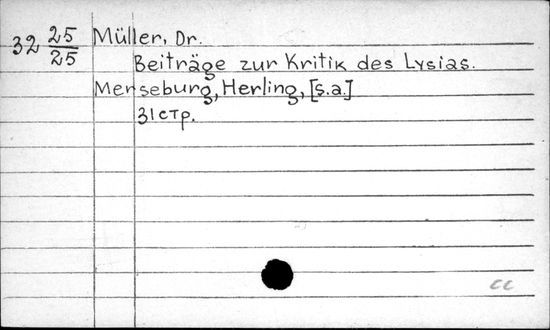 32 25/25 Müller, Dr.
Beiträge zur Kritik des Lysias.
Merseburg, Herling, [s.a.]
31 стр.
cc